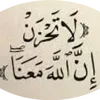 لَا تَحْزَنْ
إِنَّ اللَّهَ مَعَنَا